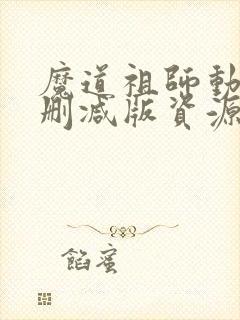 魔道祖師動
刪減版資源
餡蜜